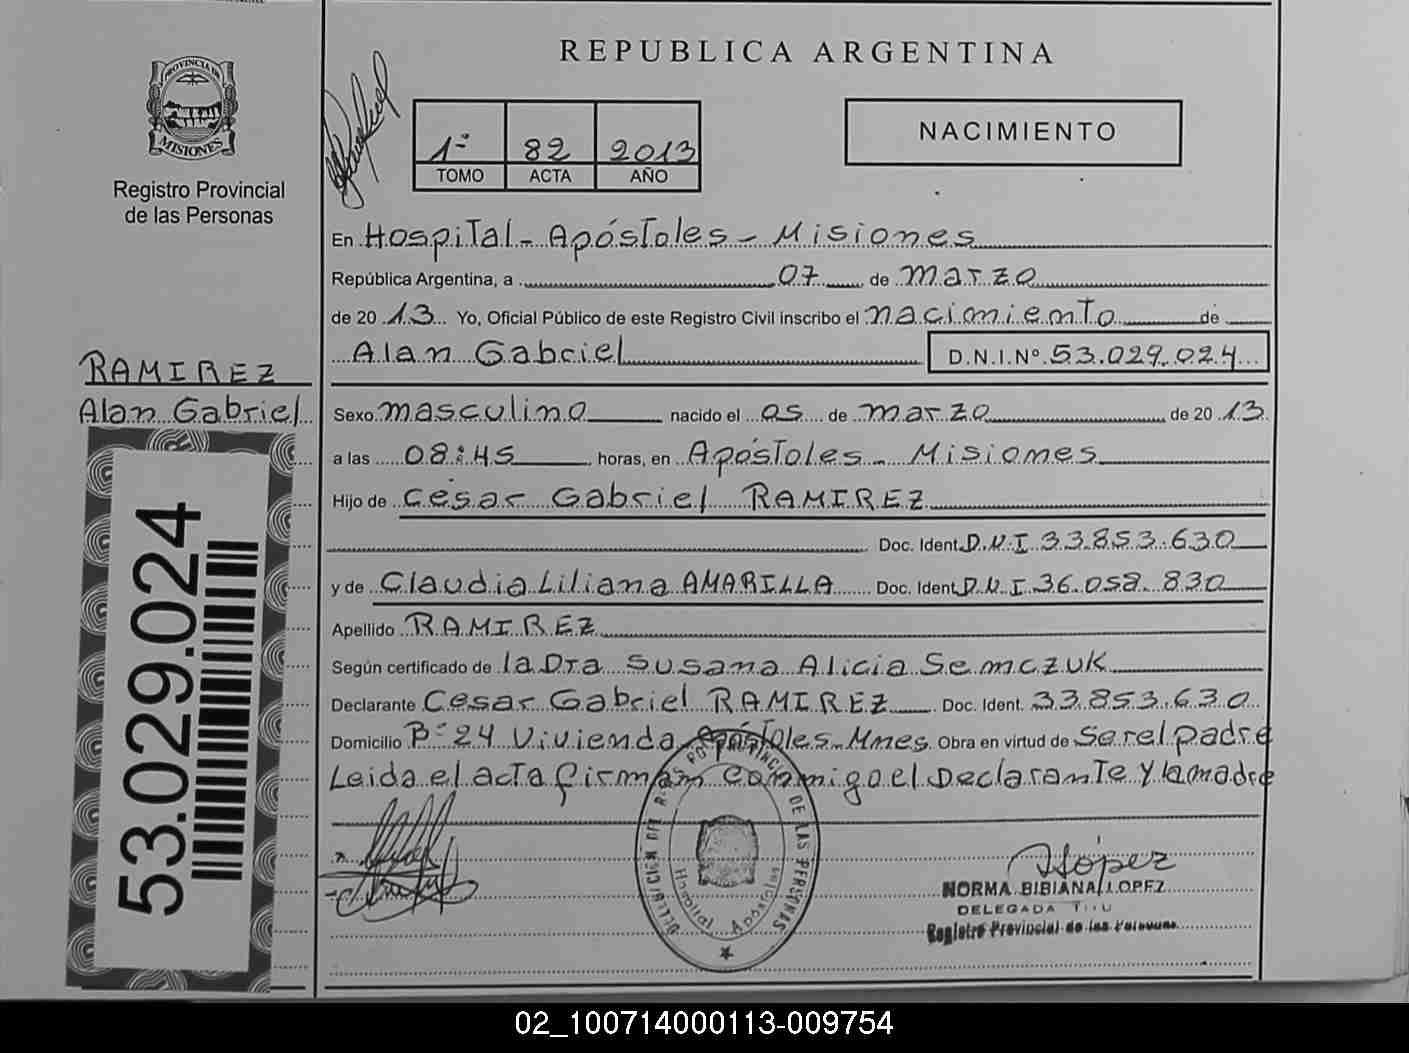 REPUBLICA ARGENTINA
PROVINCIA DE
MISIONES
Registro Provincial
de las Personas
1º 82 2013
TOMO ACTA AÑO
NACIMIENTO
En Hospital - Apóstoles - Misiones
República Argentina, a 07 de marzo
de 20 13 Yo, Oficial Público de este Registro Civil inscribo el nacimiento de
Alan Gabriel D.N.I.Nº 53.029.024
RAMIREZ
Alan Gabriel
Sexo masculino nacido el 05 de marzo de 20 13
a las 08:45 horas, en Apóstoles - Misiones
Hijo de Cesar Gabriel RAMIREZ
Doc. Ident. D.N.I 33.853.630
y de Claudia Liliana AMARILLA Doc. Ident. D.N.I. 36.058.830
Apellido RAMIREZ
Según certificado de la Dra Susana Alicia Semczuk
Declarante Cesar Gabriel RAMIREZ Doc. Ident. 33.853.630
Domicilio Bº 24 Vivienda Apóstoles - Mnes Obra en virtud de Ser el padre
Leida el acta firman conmigo el Declarante y la madre
53.029.024
DE LAS PERSONAS
Hospital Apóstoles
López
NORMA BIBIANA LOPEZ
DELEGADA
Registro Provincial de las Personas
02_100714000113-009754